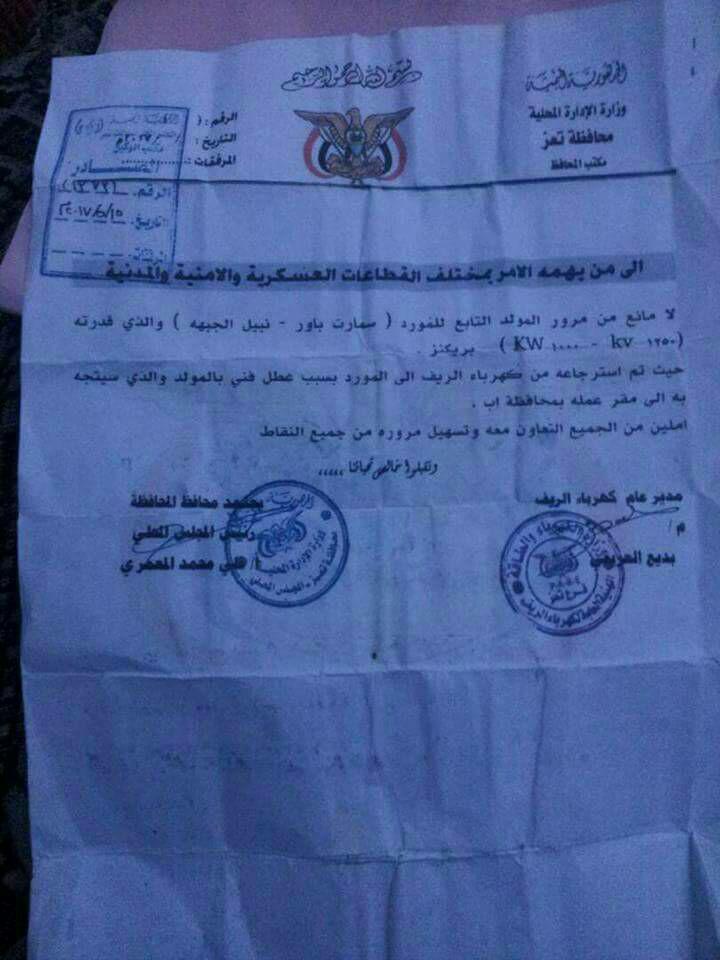 بسم الله الرحمن الرحيم
الجمهورية اليمنية
وزارة الإدارة المحلية
محافظة تعز
مكتب المحافظ
الرقم : (
التاريخ :
المرفقات :
الصادر
الرقم
التاريخ ٢٠١٧/٥/١٥
الى من يهمه الامر بمختلف القطاعات العسكرية والامنية والمدنية
لا مانع من مرور المولد التابع للمورد ( سمارت باور - نبيل الجبهه ) والذي قدرته
(١٢٥٠ kv - ١٠٠٠ KW ) بريكنز .
حيث تم استرجاعه من كهرباء الريف الى المورد بسبب عطل فني بالمولد والذي سيتجه
به الى مقر عمله بمحافظة اب .
املين من الجميع التعاون معه وتسهيل مروره من جميع النقاط
وتقبلوا خالص تحياتنا ,,,,,
مدير عام كهرباء الريف
م/
بديع
يعتمد محافظ المحافظة
رئيس المجلس المحلي
أ/ علي محمد المعمري